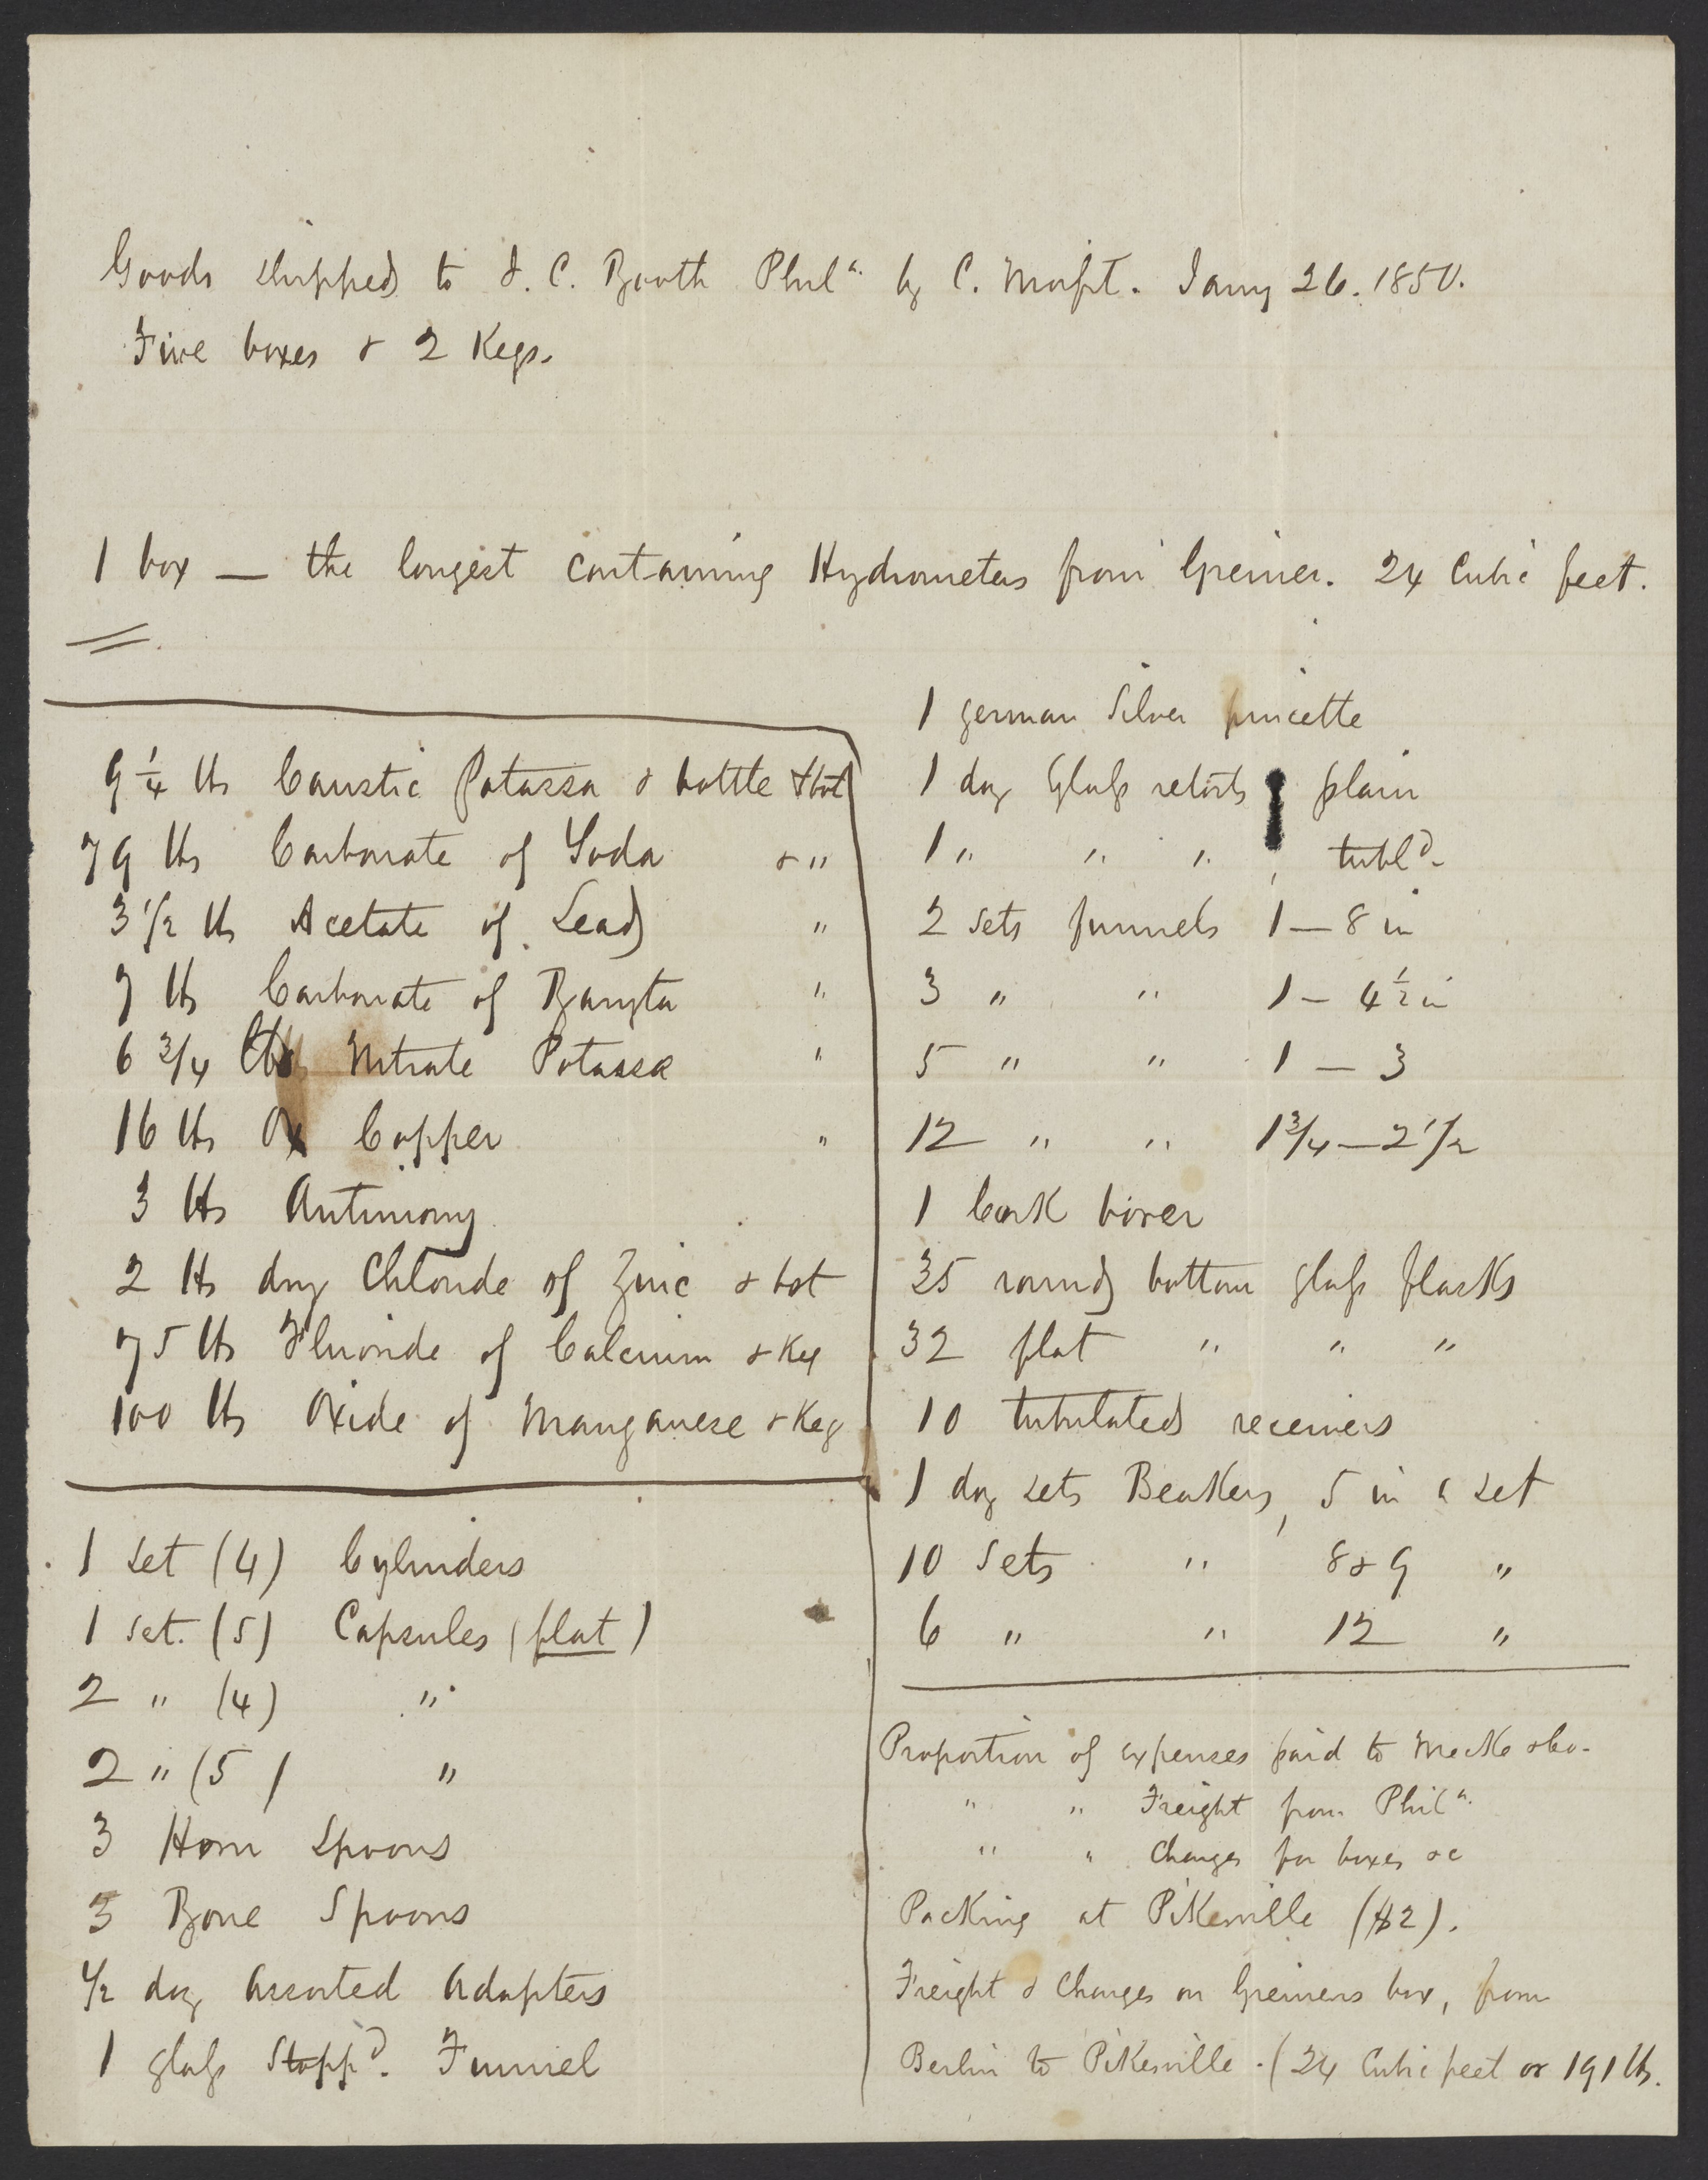 Goods shipped to J. C. Booth Phila. by C. Morfit. Jany 26. 1850.
Five boxes & 2 Kegs.
1 box — the longest containing Hydrometers from Greiner. 24 Cubic feet.
9 1/4 lbs Caustic Potassa & bottle & bot
79 lbs Carbonate of Soda & "
3 1/2 lbs Acetate of Lead "
7 lbs Carbonate of Baryta "
6 3/4 lbs Nitrate Potassa "
16 lbs Ox Copper "
3 lbs Antimony
2 lbs dry Chloride of Zinc & bot
75 lbs Fluoride of Calcium & Keg
100 lbs Oxide of Manganese & Keg
1 set (4) Cylinders
1 set. (5) Capsules (flat)
2 " (4) "
2 " (5) "
3 Horn Spoons
3 Bone Spoons
1/2 doz assorted Adapters
1 glass Stoppd. Funnel
1 german Silver pincette
1 doz Glass retorts plain
1 " " " , tubld.
2 sets funnels 1—8 in
3 " " 1 — 4 1/2 in
5 " " 1 — 3
12 " " 1 3/4 — 2 1/2
1 Cork borer
35 round bottom glass flasks
32 flat " " "
10 tubulated receivers
1 doz sets Beakers, 5 in a set
10 Sets " 8 & 9 "
6 " " 12 "
Proportion of expenses paid to Mecke & Co.
" " Freight from Phila.
" " Charges for boxes &c
Packing at Pikesville ($2).
Freight & Charges on Greiners box, from
Berlin to Pikesville. (24 Cubic feet or 191 lbs.